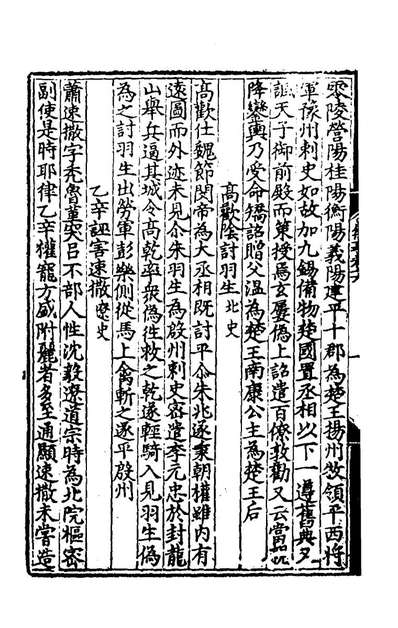 零陵營陽桂陽衡陽義陽建平十郡為楚王揚州牧領平西將
軍豫州刺史如故加九錫備物楚國置丞相以下一遵舊典又
諷天子御前殿而策授焉玄屢偽上詔遣百僚敦勸又云當
降鑾輿乃受命矯詔贈父溫為楚王南康公主為楚王后
高歡陰討羽生北史
高歡仕魏節閔帝為大丞相既討平尒朱兆遂秉朝權雖內有
遠圖而外迹未見尒朱羽生為殷州刺史密遣李元忠於封龍
山舉兵逼其城令高乾率衆偽徃救之乾遂輕騎入見羽生偽
為之計羽生出勞軍彭樂側從馬上禽斬之遂平殷州
乙辛誣害速撒遼史
蕭速撒字禿魯菫突呂不部人性沈毅遼道宗時為北院樞密
副使是時耶律乙辛權寵方盛附麗者多至通顯速撒未嘗造